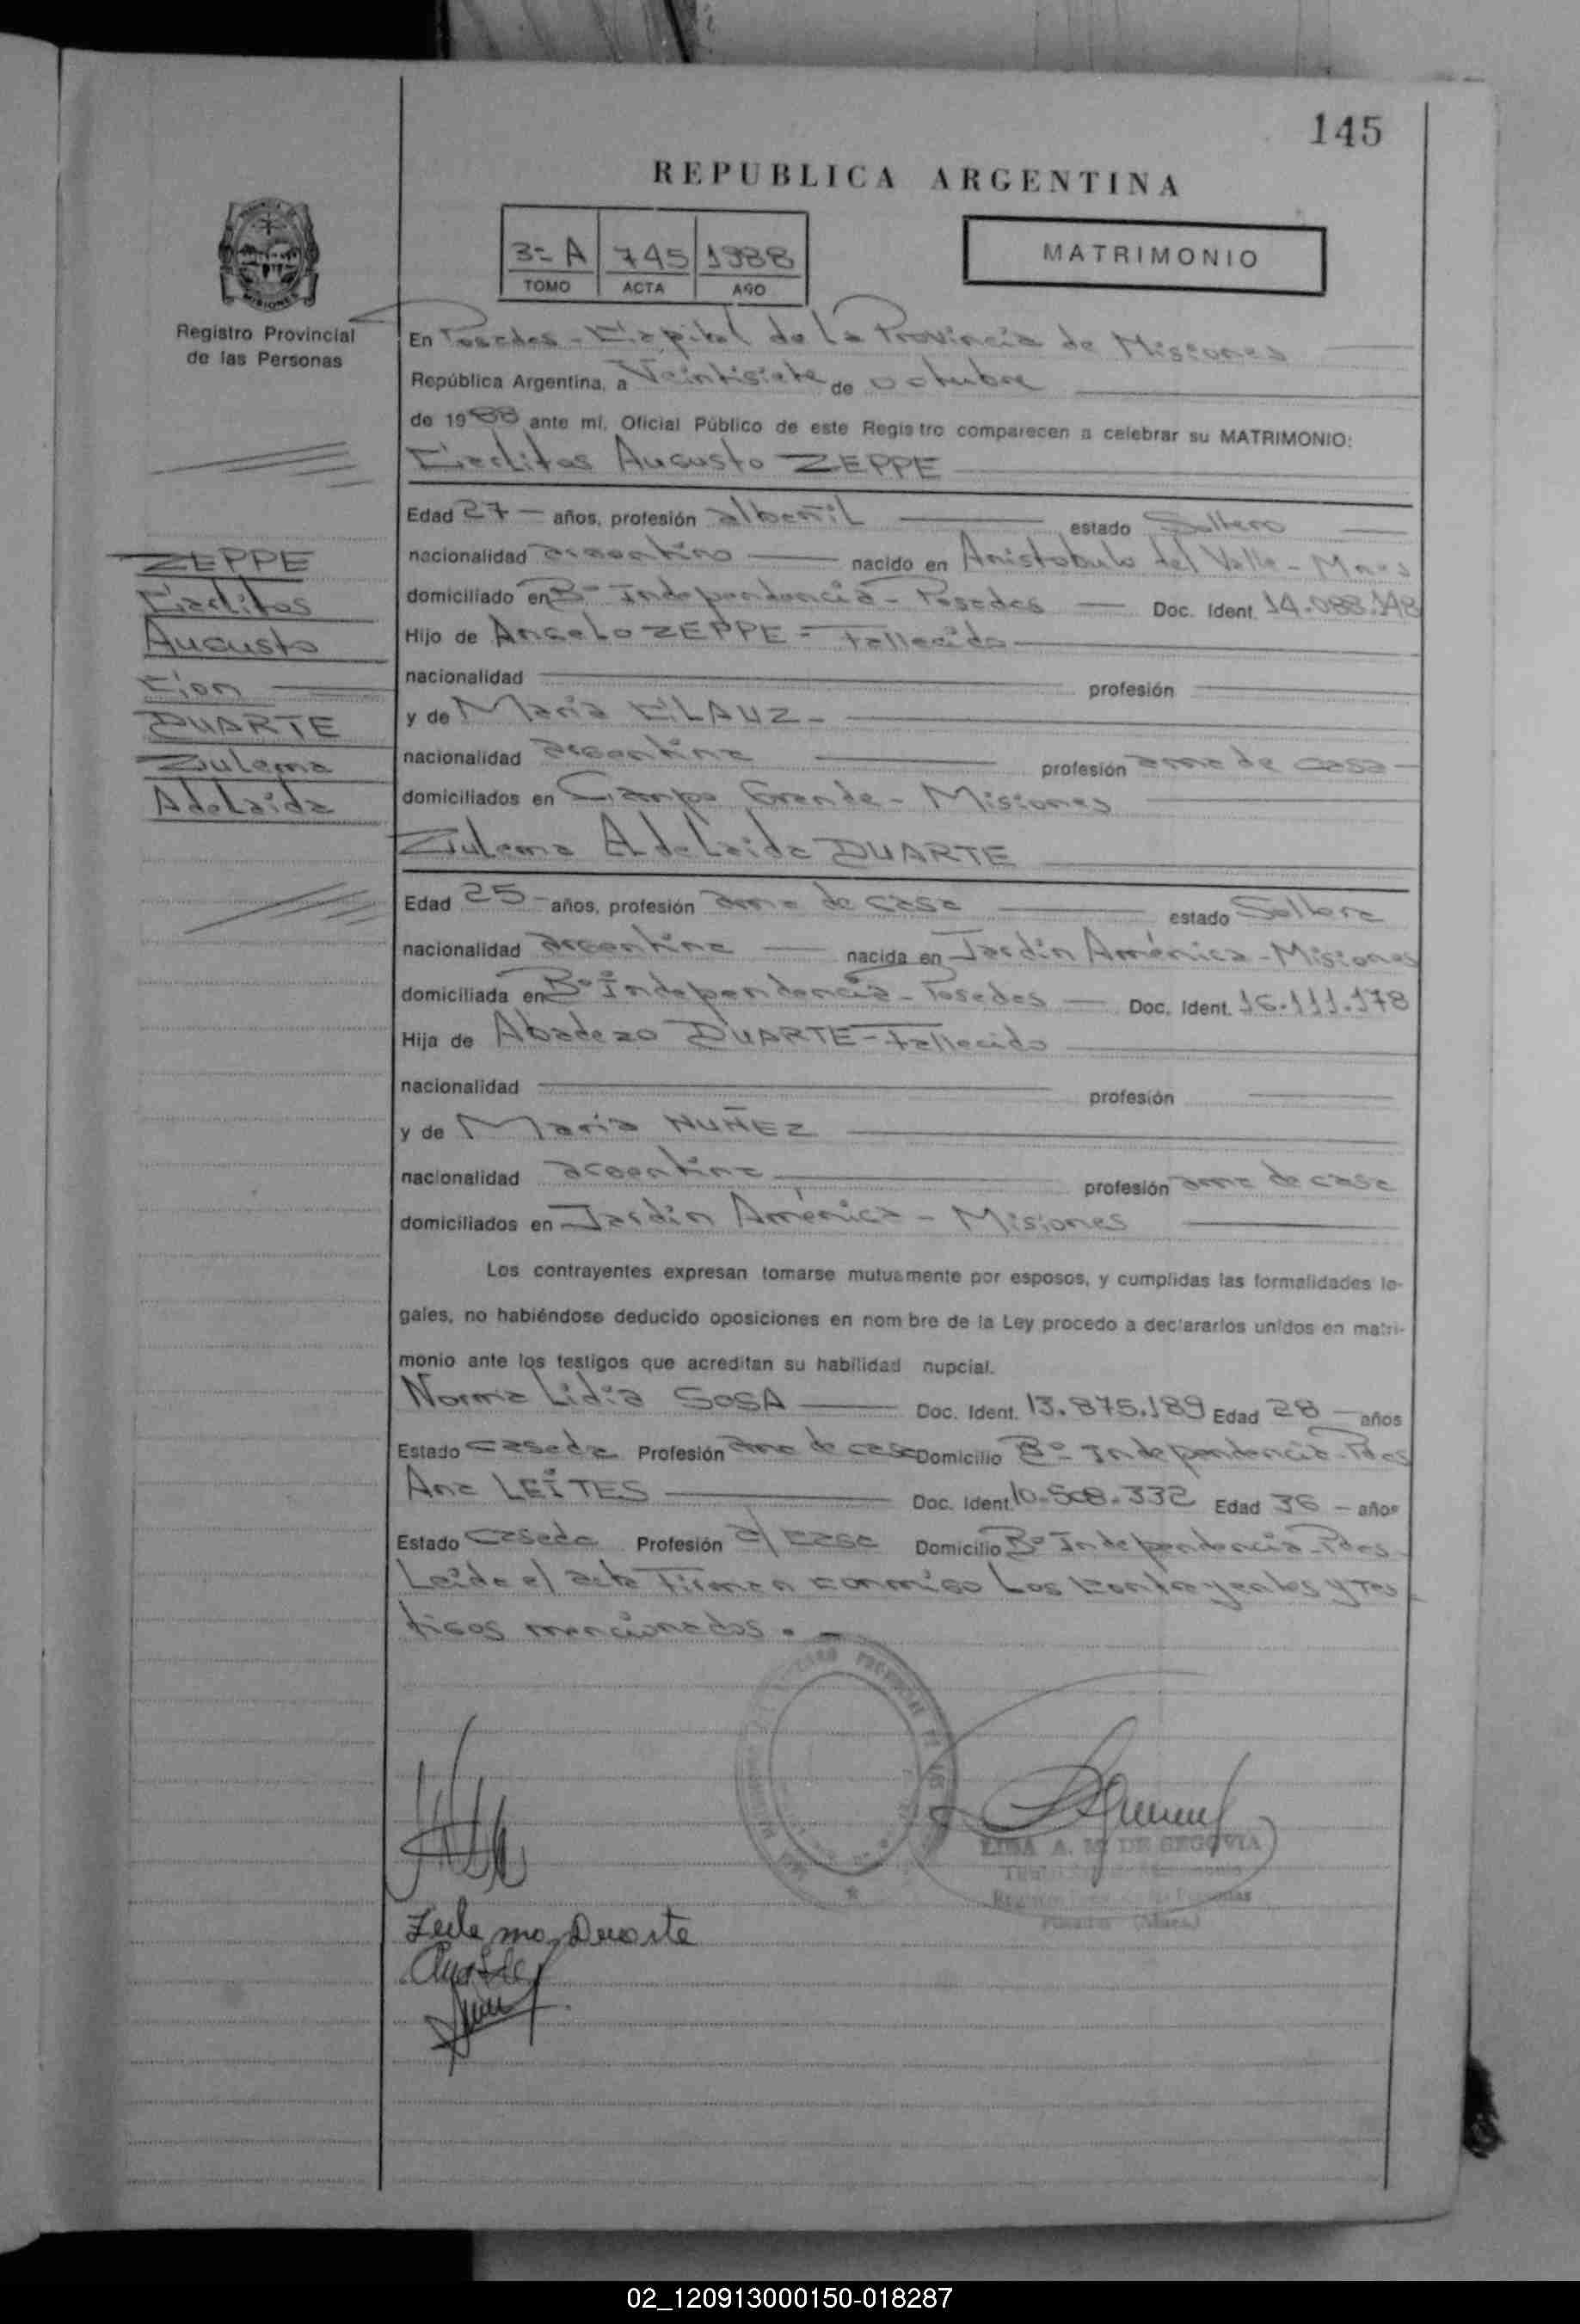 145
REPUBLICA ARGENTINA
3= A 745 1988
TOMO ACTA AÑO
MATRIMONIO
Registro Provincial
de las Personas
En Posadas - Capital de La Provincia de Misiones
República Argentina, a Veintisiete de octubre
de 1988 ante mí, Oficial Público de este Registro comparecen a celebrar su MATRIMONIO:
Carlitos Augusto ZEPPE
Edad 27 - años, profesión albañil estado Soltero
nacionalidad argentino nacido en Aristobulo del Valle - Mnes
domiciliado en B° Independencia - Posadas Doc. Ident. 14.088.148
Hijo de Angelo ZEPPE = Fallecido
nacionalidad profesión
y de Maria
nacionalidad argentina profesión ama de casa
domiciliados en Campo Grande - Misiones
ZEPPE
Carlitos
Augusto
Con
DUARTE
Zulema
Adelaida
Zulema Adelaida DUARTE
Edad 25 - años, profesión ama de casa estado Soltera
nacionalidad argentina nacida en Jardin América - Misiones
domiciliada en B° Independencia - Posadas Doc. Ident. 16.111.178
Hija de DUARTE - Fallecido
nacionalidad profesión
y de Maria NUÑEZ
nacionalidad argentina profesión ama de casa
domiciliados en Jardin América - Misiones
Los contrayentes expresan tomarse mutuamente por esposos, y cumplidas las formalidades le-
gales, no habiéndose deducido oposiciones en nombre de la Ley procedo a declararlos unidos en matri-
monio ante los testigos que acreditan su habilidad nupcial.
Norma Lidia SOSA Doc. Ident. 13.875.189 Edad 28 - años
Estado casada Profesión ama de casa Domicilio B° Independencia - Pdas
Ana LEITES Doc. Ident. 10.508.332 Edad 36 - años
Estado Casada Profesión a/ casa Domicilio B° Independencia - Pdas
Leida el acta Firman conmigo Los contrayentes y tes
tigos mencionados. -
A. M. DE SEGOVIA
Zulema Duarte
02_120913000150-018287